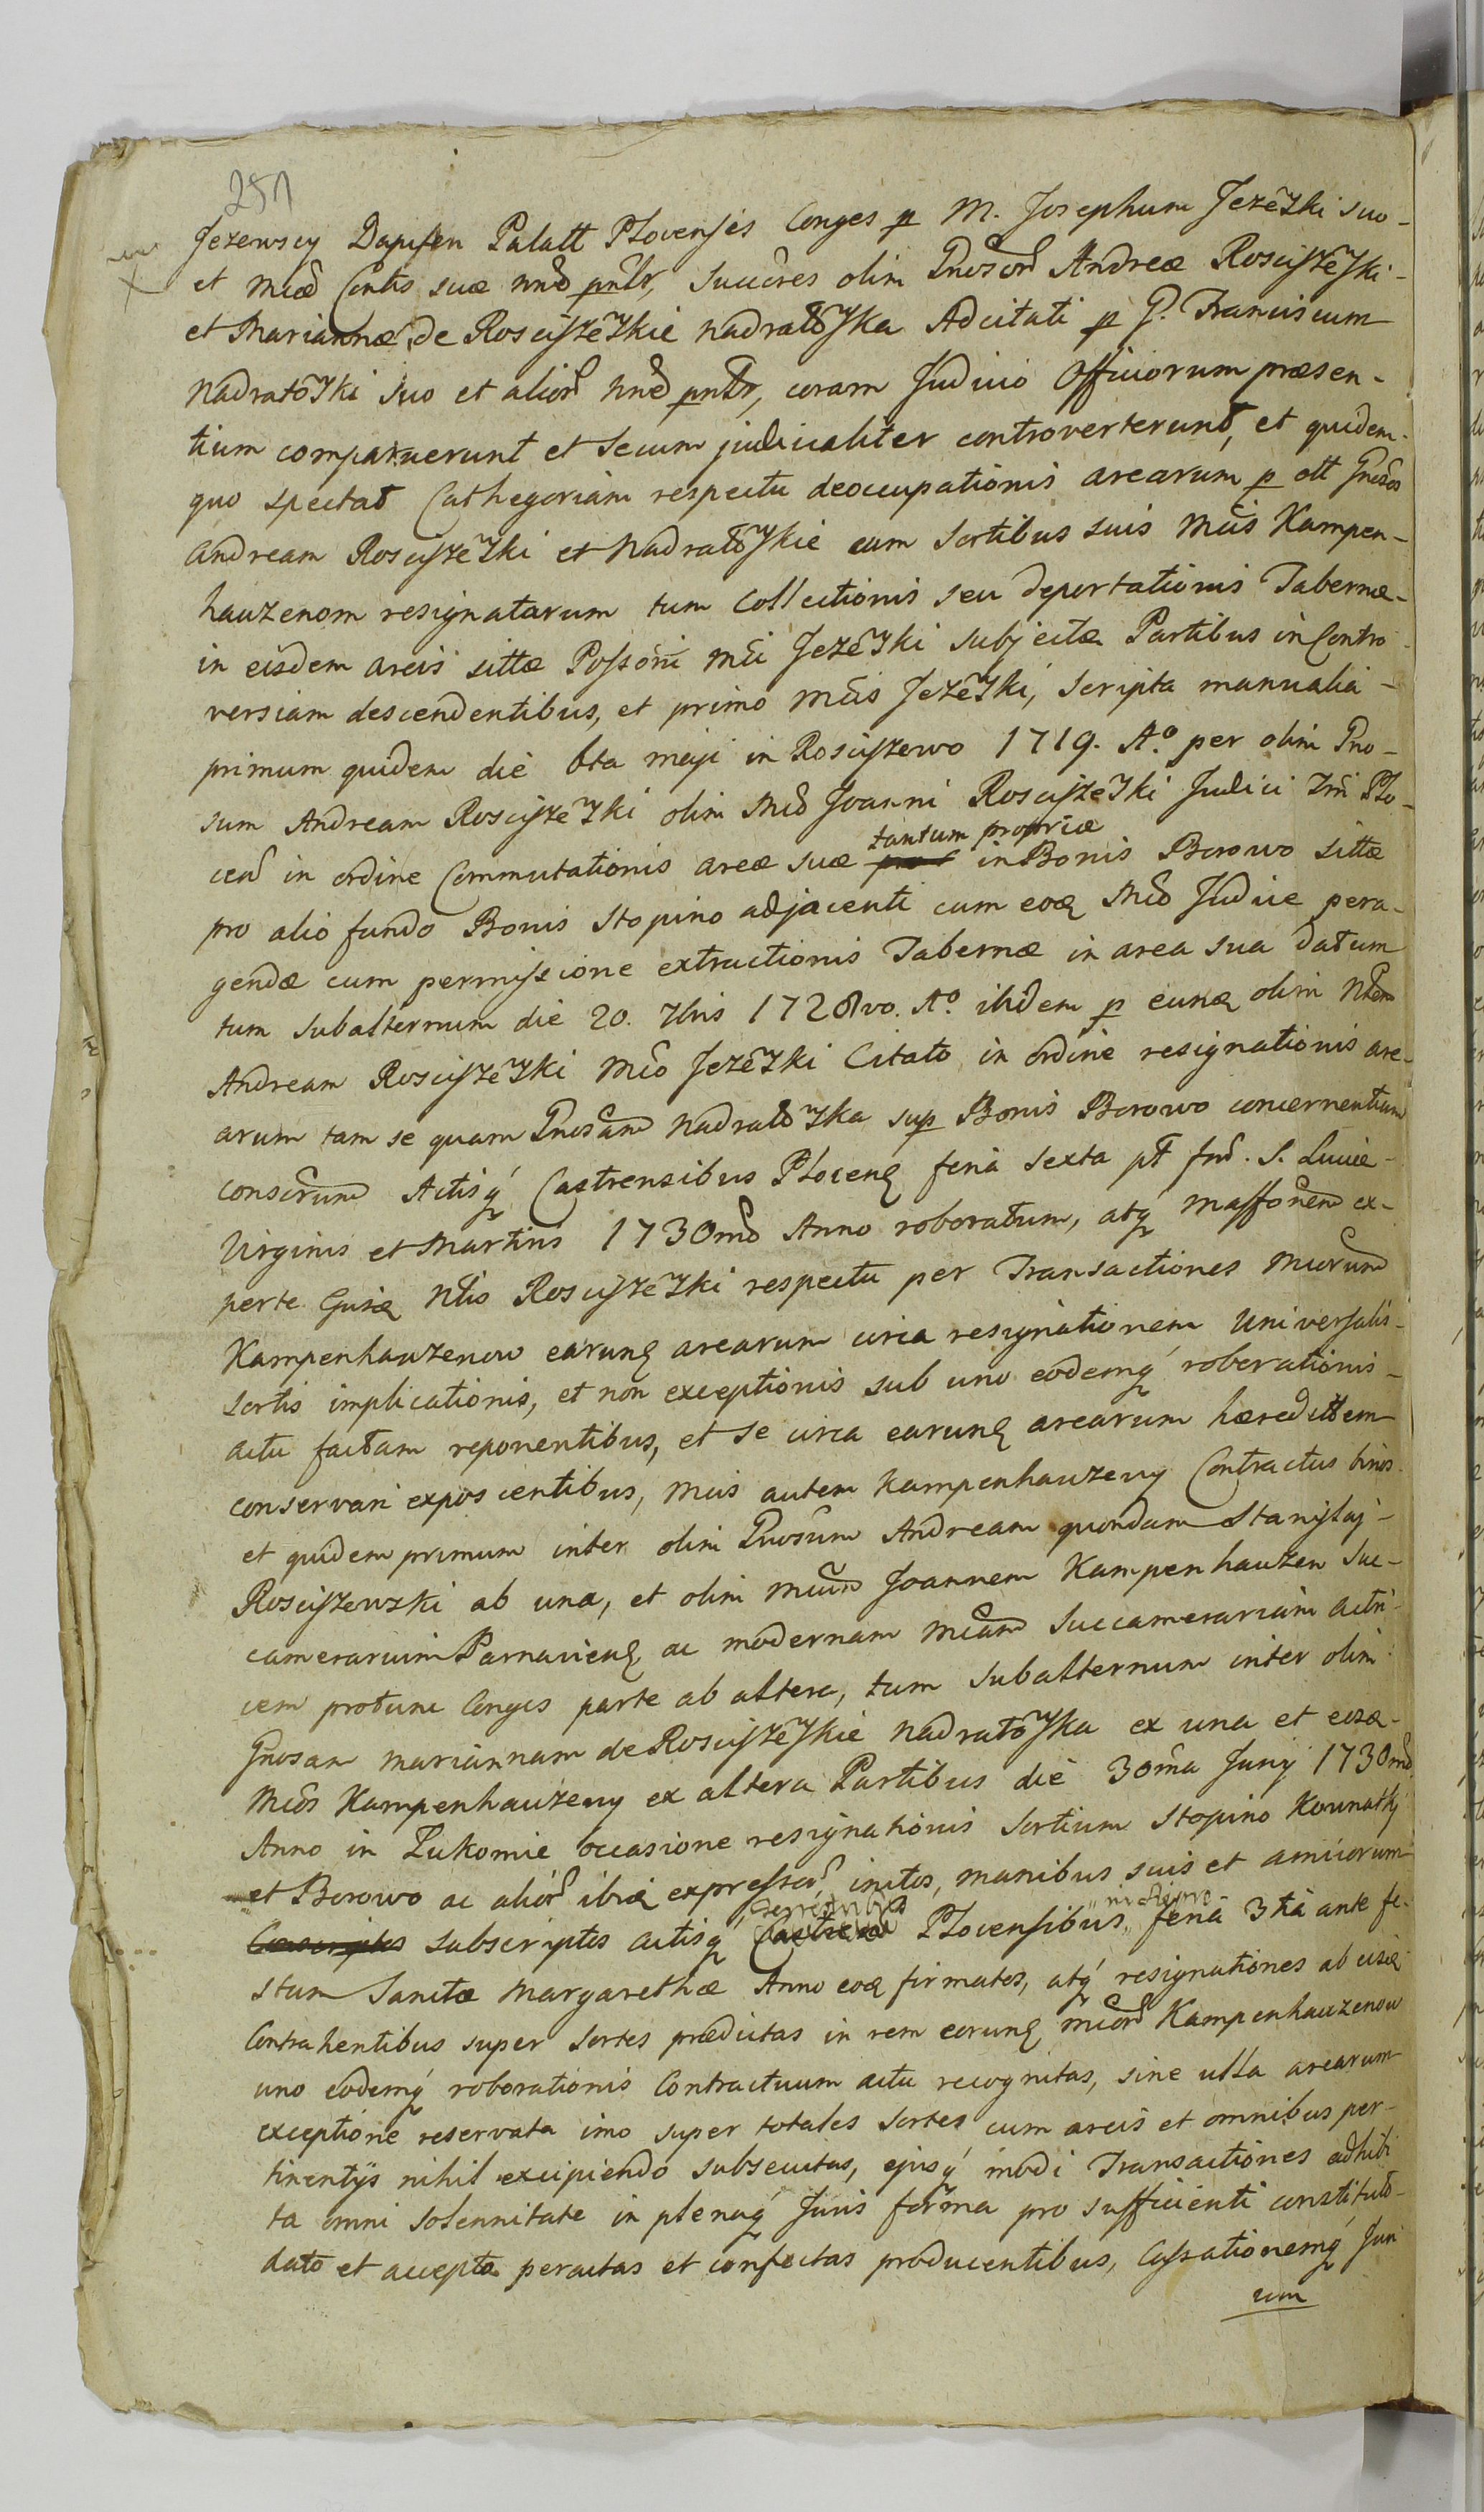 251
Jezewscy Dapifen Palatt Plocenses Conges p M. Josephum Jezewski suo
et Micae Contis suae nnē pntbr, succōres olim Gnosorū Andreae Rosciszewski
et Mariannae de Rosciszewskie Nadratowska Adcitati p G. Franciscum
Nadratowski suo et aliorū nnē pntbr, coram Judicio Officiorum praesen-
tium comparuerunt et secum judicialiter controverterunt, et quidem
quo spectat Cathegoriam respectu deoccupationis arearum p ott Gnosos
Andream Rosciszewski et Nadratowskie cum sortibus suis Mcis Kampen-
hauzenom resignatarum tum Collectionis seu deportationis Tabernae
in eisdem areis sittae Possoni Mci Jezewski subjectae Partibus in Contro
versiam descendentibus, et primo Mcis Jezewski, scripta manualia
primum quidem die 6ta maji in Rosciszewo 1719. A.o per olim Gno-
sum Andream Rosciszewski olim Mco Joanni Rosciszewski Judici Tri Plo-
cen in ordine Commutationis areae suae tantum propriae in Bonis Borowo sittae
pro alio fundo Bonis Stopino adjacenti cum eoq Mco Judice pera-
gendae cum permissione extructionis Tabernae in area sua datum
tum subalternum die 20. 7bris 1728vo. Ao. ibidem p eunq olim Ntem
Andream Rosciszewski Mco Jezewski Citato in ordine resignationis are-
arum tam se quam Gnosam Nadratowska sup Bonis Borowo concernentium
conscrum Actisq Castrensibus Plocenq feria sexta pt fm. S. Luciae
Virginis et Martiris 1730mo Anno roboratum, atq Massonem ex
perte Gnsq Ntio Rosciszewski respectu per Transactiones Mcorum
Kampenhauzenow earunq arearum circa resignationem Universalis
sortis implicationis, et non exceptionis sub uno eodemq roborationis
actu factam reponentibus, et se circa earunq arearum haeredittem
conservari exposcentibus, Mcis autem Kampenhauzeny Contractus binos
et quidem primum inter olim Gnosum Andream quondam Stanislaj
Rosciszewski ab una, et olim Mcum Joannem Kampenhauzen suc-
camerarium Parnavienq ac modernam Mcam Succamerariam actri
cem protunc Conges parte ab altera, tum subalternum inter olim
Gnosam Mariannam de Rosciszewskie Nadratowska ex una et eosq
Mcos Kampenhauzeny ex altera Partibus die 30ma Junij 1730mo
Anno in Lukomie occasione resignationis sortium Stopino Kownatki
et Borowo ac aliorū ibiq expressorū initos, manibus suis et amicorum
subscriptos actisq terrestribus Plocensibus feria 3tia ante fe-
stum Sanctae Margarethae Anno eoq firmatos, atq resignationes ab eisq
Contrahentibus super sortes praedictas in rem eorunq Mcorū Kampenhauzenow
uno eodemq roborationis Contractuum actu recognitas, sine ulla arearum
exceptione reservata imo super totales sortes cum areis et omnibus per-
tinentijs nihil excipiendo subsecutas, ejusq modi Transactiones adhibi
ta omni solennitate in plenaq Juris forma pro sufficienti constituto
dato et accepto peractas et confectas producentibus, Cassationemq Juri
um